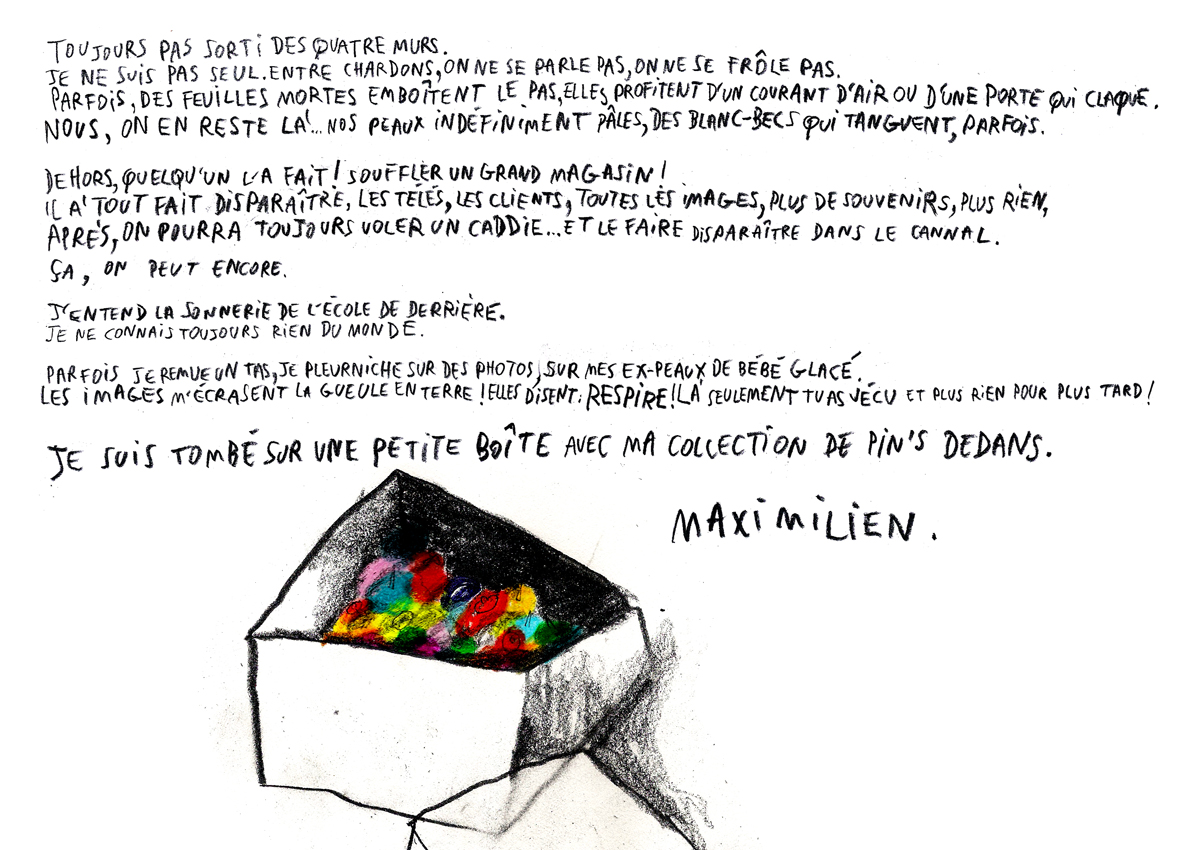 TOUJOURS PAS SORTI DES QUATRE MURS.
JE NE SUIS PAS SEUL. ENTRE CHARDONS, ON NE SE PARLE PAS, ON NE SE FRÔLE PAS.
PARFOIS, DES FEUILLES MORTES EMBOÎTENT LE PAS, ELLES PROFITENT D'UN COURANT D'AIR OU D'UNE PORTE QUI CLAQUE.
NOUS, ON EN RESTE LÀ... NOS PEAUX INDÉFINIMENT PÂLES, DES BLANC-BECS QUI TANGUENT, PARFOIS.
DEHORS, QUELQU'UN L'A FAIT! SOUFFLER UN GRAND MAGASIN!
IL A TOUT FAIT DISPARAÎTRE, LES TÉLÉS, LES CLIENTS, TOUTES LES IMAGES, PLUS DE SOUVENIRS, PLUS RIEN,
APRÈS, ON POURRA TOUJOURS VOLER UN CADDIE... ET LE FAIRE DISPARAÎTRE DANS LE CANNAL.
ÇA, ON PEUT ENCORE.
J'ENTEND LA SONNERIE DE L'ÉCOLE DE DERRIÈRE.
JE NE CONNAIS TOUJOURS RIEN DU MONDE.
PARFOIS JE REMUE UN TAS, JE PLEURNICHE SUR DES PHOTOS, SUR MES EX-PEAUX DE BÉBÉ GLACÉ.
LES IMAGES M'ÉCRASENT LA GUEULE EN TERRE! ELLES DISENT: RESPIRE! LÀ SEULEMENT TU AS VÉCU ET PLUS RIEN POUR PLUS TARD!
JE SUIS TOMBÉ SUR UNE PETITE BOÎTE AVEC MA COLLECTION DE PIN'S DEDANS.
MAXIMILIEN.